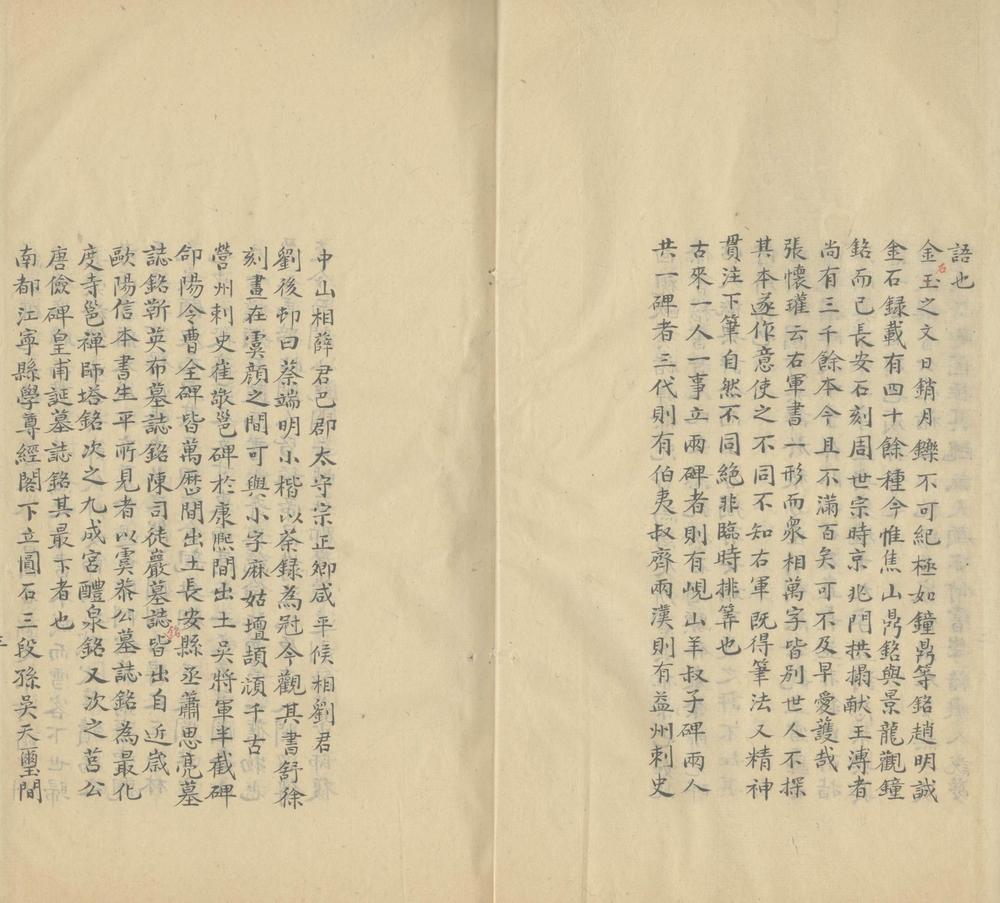 語也
金玉之文日銷月鑠不可紀極如鐘鼎等銘趙明誠
石
金石録載有四十餘種今惟焦山鼎銘與景龍觀鐘
銘而已長安石刻周世宗時京兆門拱搨献王溥者
尚有三千餘本今且不滿百矣可不及早愛護哉
張懷瓘云右軍書一形而衆相萬字皆别世人不探
其本遂作意使之不同不知右軍既得筆法又精神
貫注下筆自然不同絶非臨時排筭也
古來一人一事立兩碑者則有峴山羊叔子碑兩人
共一碑者三代則有伯夷叔齊兩漢則有益州刺史
中山相薛君巴郡太守宗正卿咸平侯相劉君
劉後邨曰蔡端明小楷以茶録為冠今觀其書舒徐
刻畫在虞顔之間可與小字麻姑壇頡頏千古
營州刺史崔敬邕碑於康熙間出土吳將軍半截碑
郃陽令曹全碑皆萬厯間出土長安縣丞蕭思亮墓
誌銘靳英布墓誌銘陳司徒巖墓誌皆出自近嵗
銘
歐陽信本書生平所見者以虞恭公墓誌銘為最化
度寺邕禅師塔銘次之九成宫醴泉銘又次之莒公
唐儉碑皇甫誕墓誌銘其最下者也
南都江寧縣學尊經閣下立圓石三段孫吴天璽間